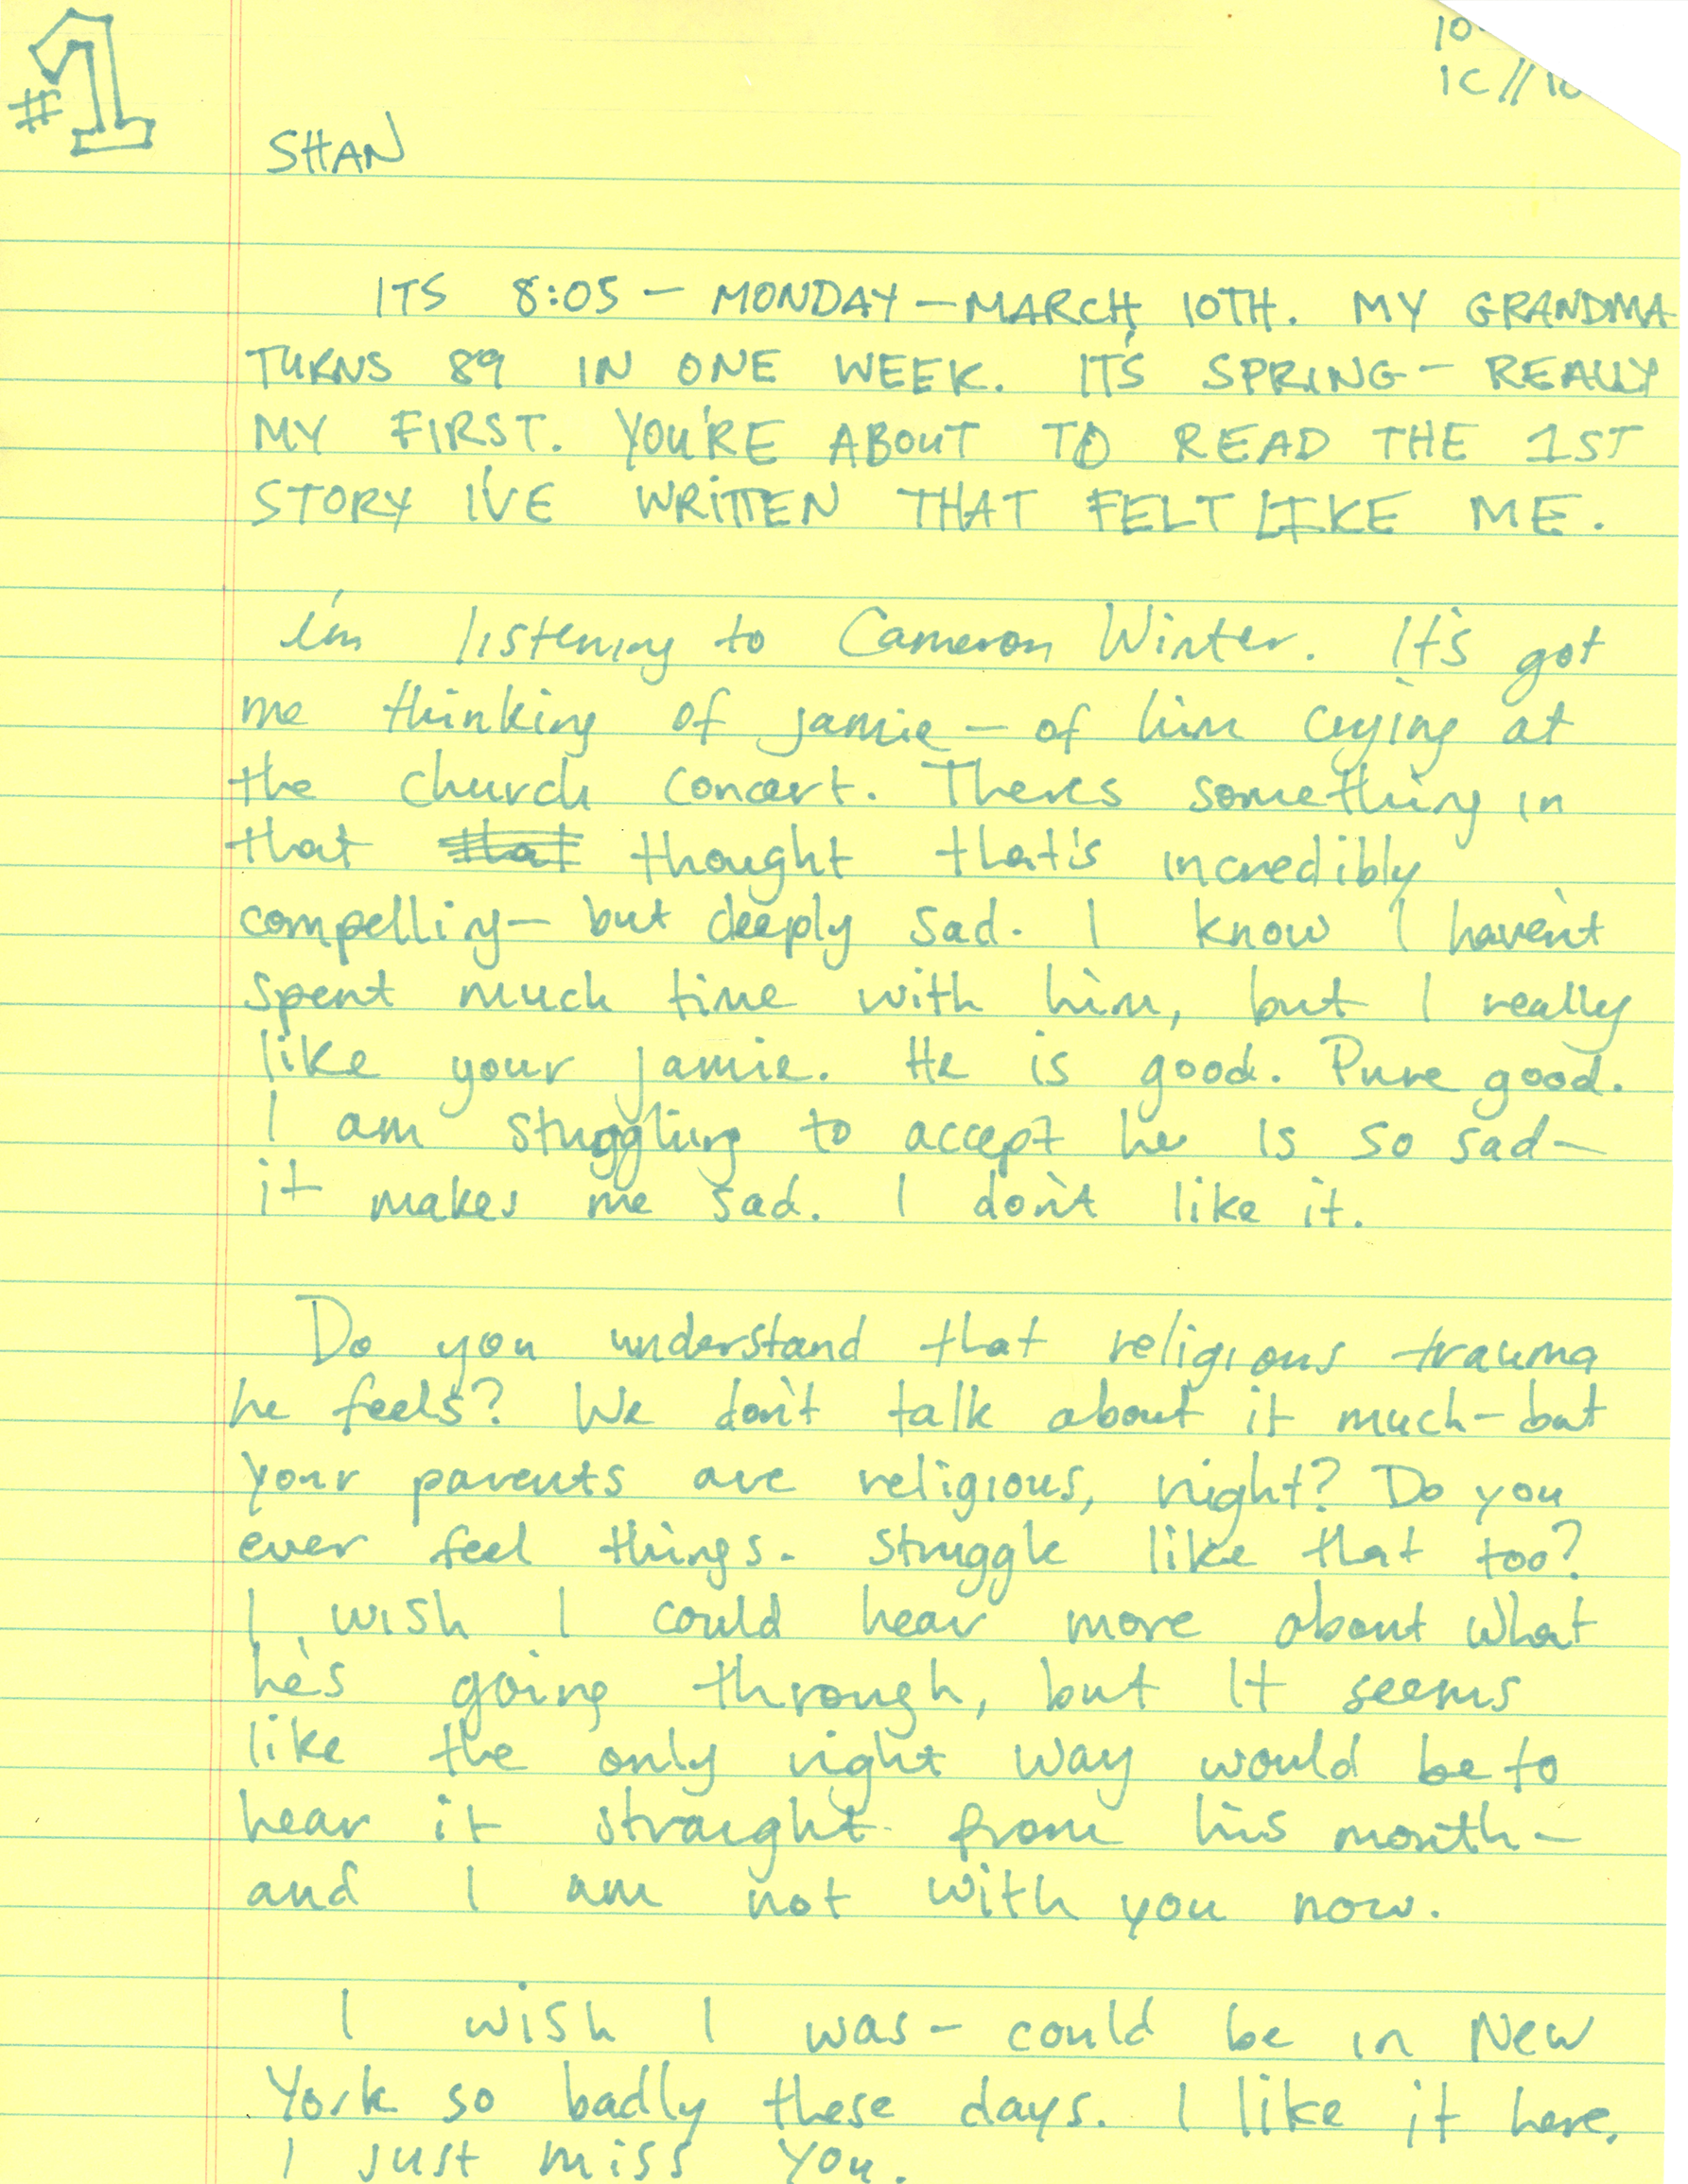 #1
10
1C//10
SHAN
ITS 8:05 – MONDAY – MARCH 10TH. MY GRANDMA
TURNS 89 IN ONE WEEK. IT'S SPRING – REALLY
MY FIRST. YOU'RE ABOUT TO READ THE 1ST
STORY I'VE WRITTEN THAT FELT LIKE ME.
I'm listening to Cameron Winter. It's got
me thinking of Jamie – of him crying at
the church concert. Theres something in
that that thought that's incredibly
compelling – but deeply sad. I know I haven't
spent much time with him, but I really
like your Jamie. He is good. Pure good.
I am stuggling to accept he is so sad –
it makes me sad. I don't like it.
Do you understand that religious trauma
he feels? We don't talk about it much – but
your parents are religious, right? Do you
ever feel things. Struggle like that too?
I wish I could hear more about what
he's going through, but It seems
like the only right way would be to
hear it straight from his mouth –
and I am not with you now.
I wish I was – could be in New
York so badly these days. I like it here.
I just miss you.